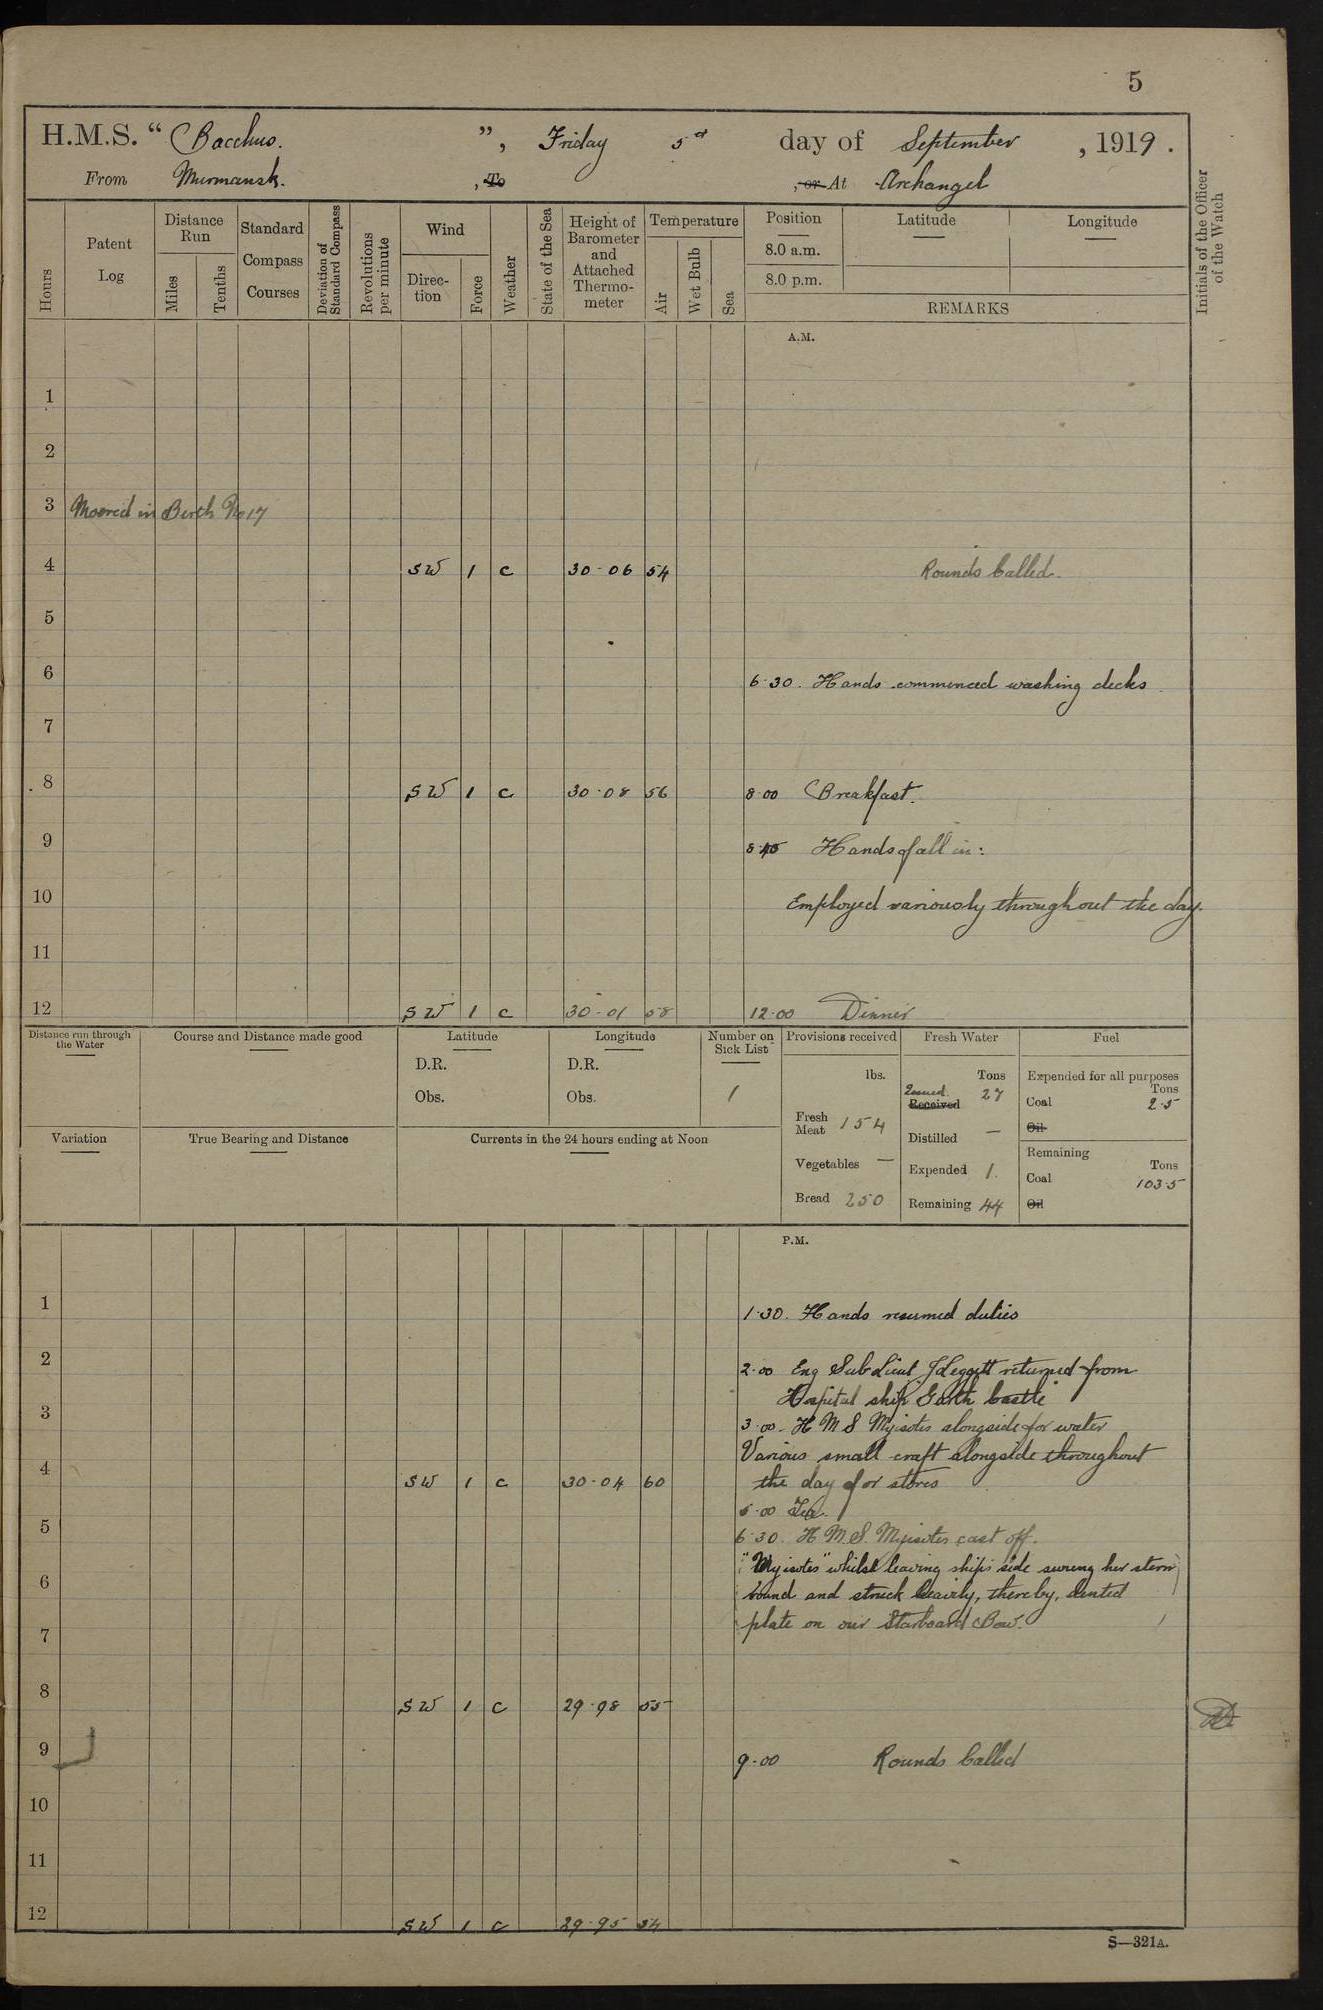 5
H.M.S. “ Bacchus. ”, Friday 5th day of September, 1919.
From Murmansk. , To , or At Archangel
Hours
Patent Log
Distance Run
Miles
Tenths
Standard Compass Courses
Deviation of Standard Compass
Revolutions per minute
Wind
Direction
Force
Weather
State of the Sea
Height of Barometer and Attached Thermometer
Temperature
Air
Wet Bulb
Sea
Position
Latitude
Longitude
8.0 a.m.
8.0 p.m.
REMARKS
Initials of the Officer of the Watch
A.M.
1
2
3 Moored in Berth No 17
4 SW 1 c 30·06 54 Rounds Called.
5
6 6·30. Hands commenced washing decks
7
8 SW 1 c 30·08 56 8·00 Breakfast.
9 8·45 Hands fall in:
10 Employed variously throughout the day.
11
12 SW 1 c 30·01 58 12·00 Dinner
Distance run through the Water
Course and Distance made good
Latitude
D.R.
Obs.
Longitude
D.R.
Obs.
Number on Sick List
1
Provisions received
lbs.
Fresh Meat 154
Vegetables —
Bread 250
Fresh Water
Tons
Issued Received 27
Distilled —
Expended 1.
Remaining 44
Fuel
Expended for all purposes
Tons
Coal 2·5
Oil
Remaining
Tons
Coal 103·5
Oil
Variation
True Bearing and Distance
Currents in the 24 hours ending at Noon
P.M.
1 1·30. Hands resumed duties
2 2·00 Eng Sub Lieut J Leggett returned from
Hospital ship Garth Castle
3 3·00. H M S Myisotis alongside for water
Various small craft alongside throughout
4 SW 1 c 30·04 60 the day for stores
·00 Tea.
5 6·30. H.M.S. Myisotes cast off.
"Myisotes" whilst leaving ships side swung her stern
6 round and struck heavily, thereby, dented
plate on our Starboard Bow.
7
8 SW 1 c 29·98 55
9 9·00 Rounds Called
10
11
12 SW 1 c 29·95 54
S—321A.